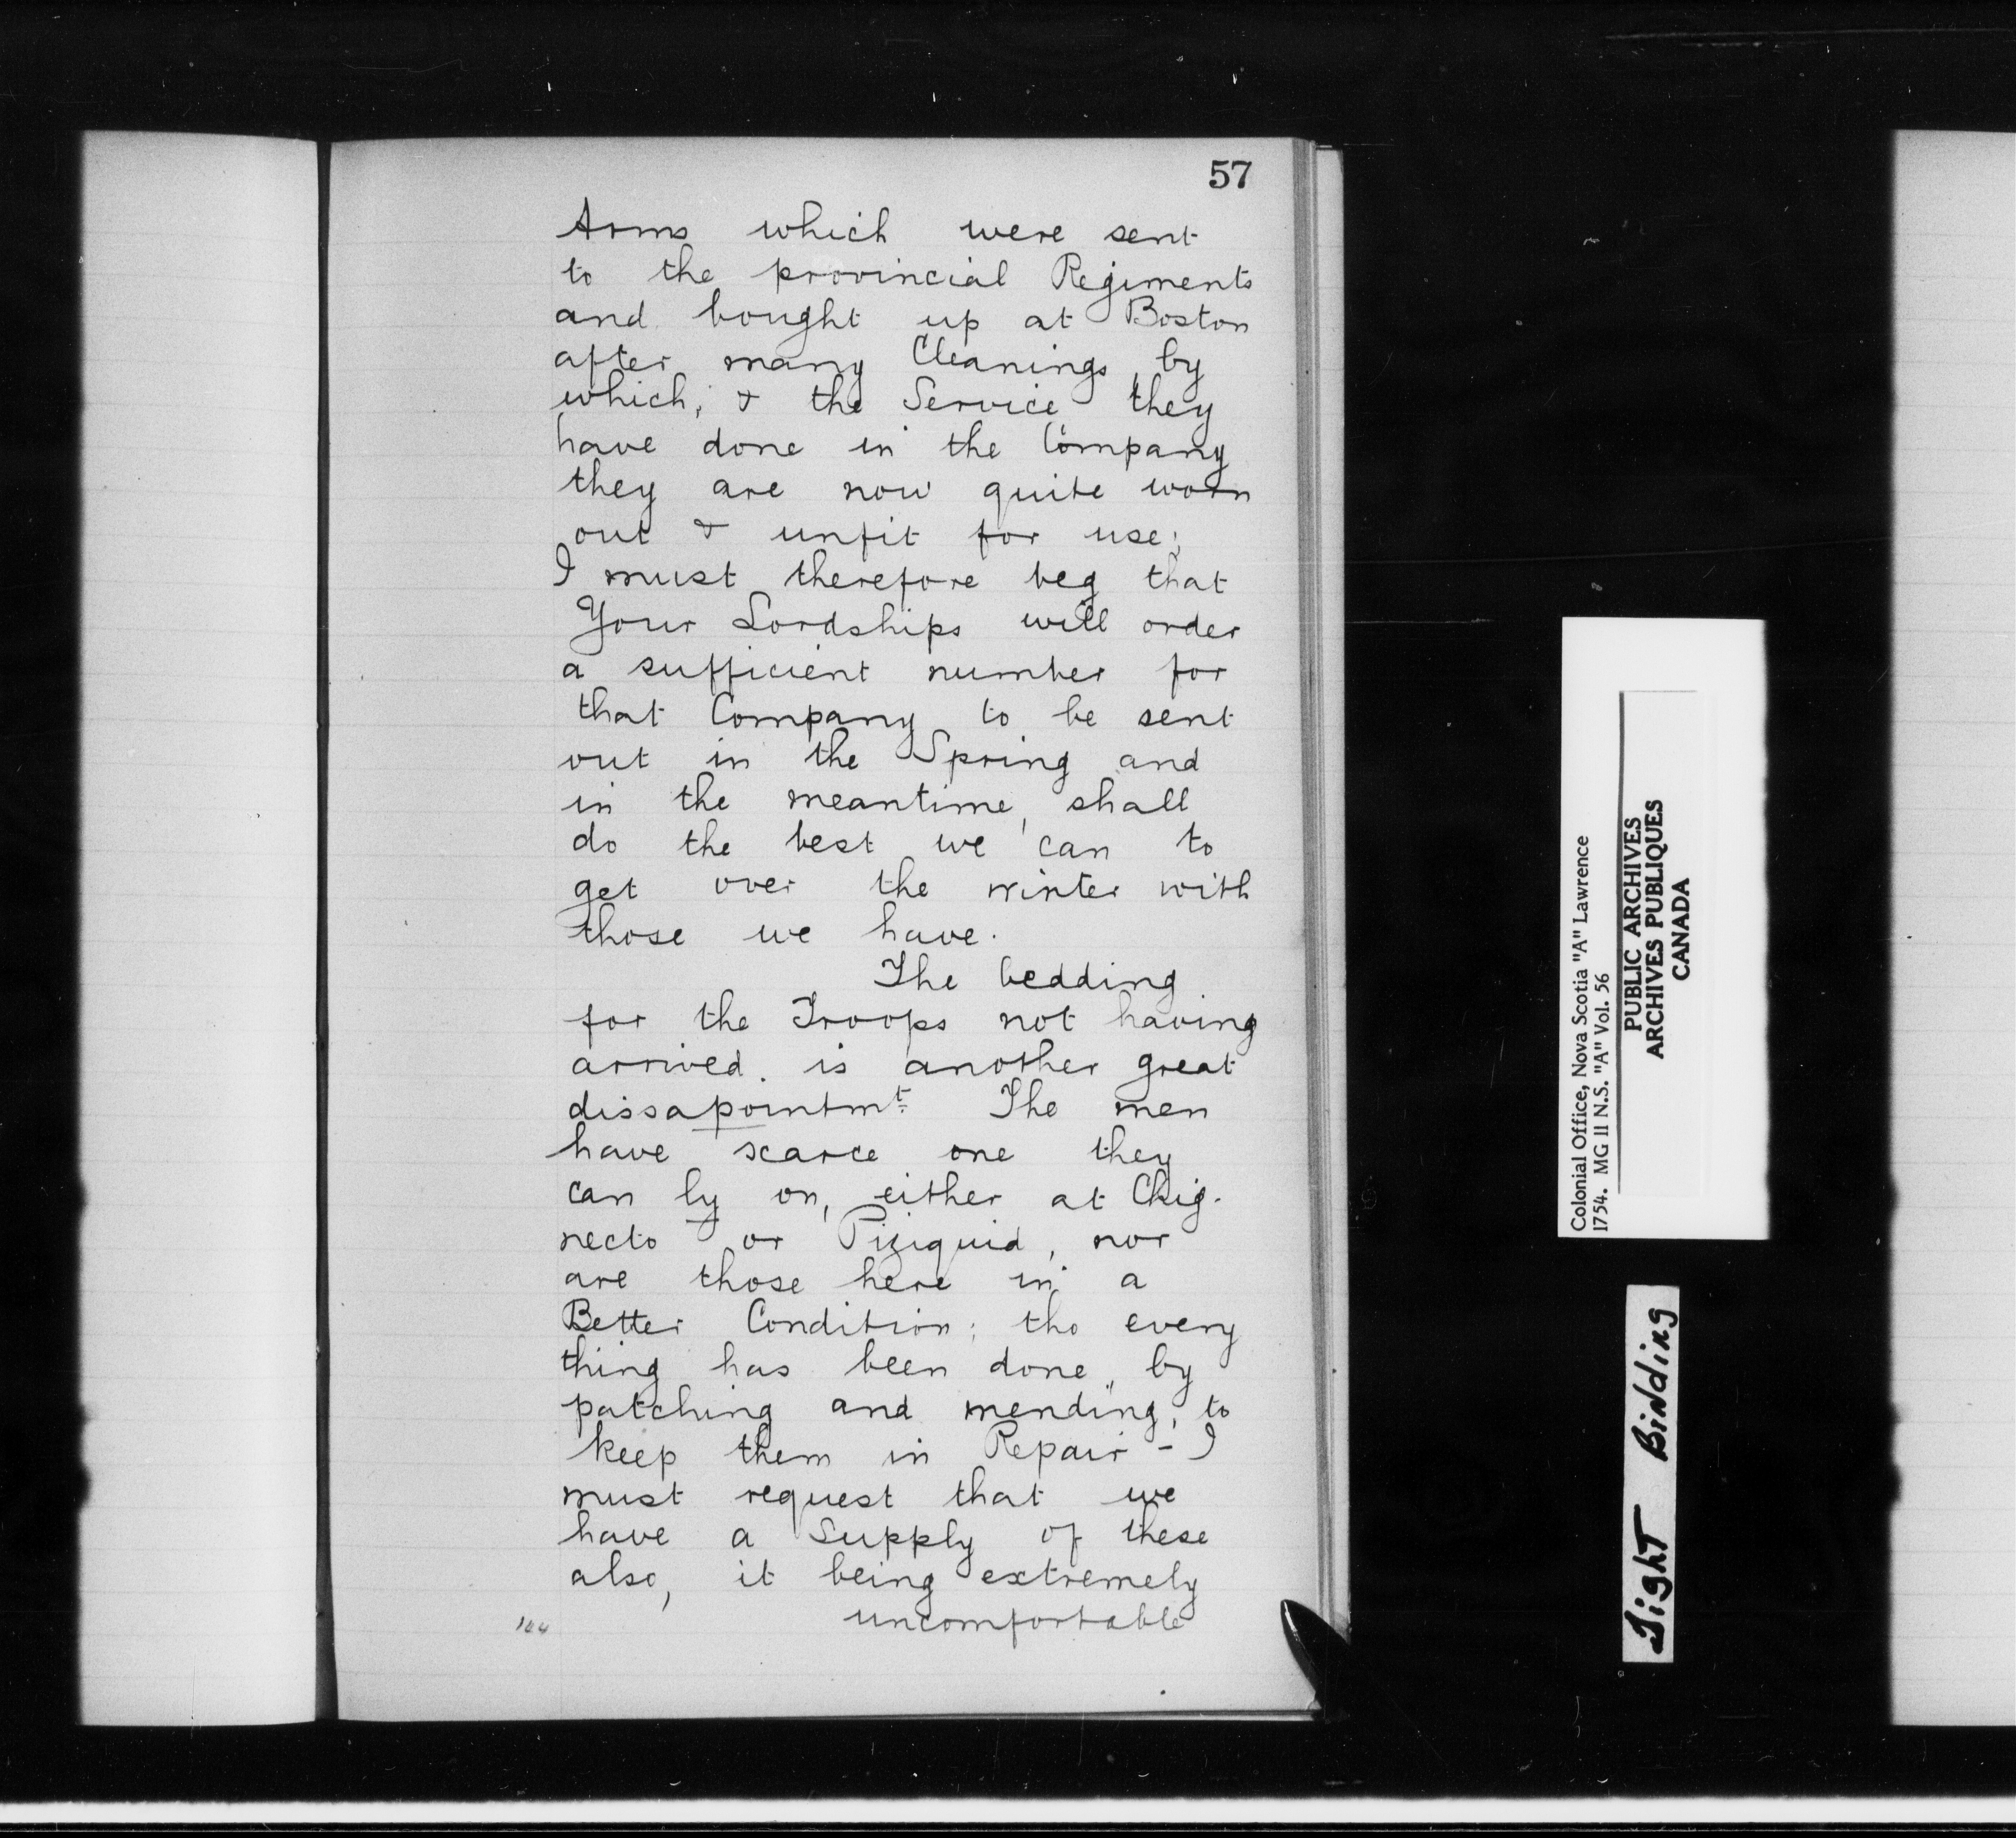 57
Arms which were sent
to the provincial Regiments
and bought up at Boston
after many Cleanings, by
which, & the Service they
have done in the Company
they are now quite worn
out & unfit for use;
I must therefore beg that
Your Lordships will order
a sufficient number for
that Company to be sent
out in the Spring and
in the meantime, shall
do the best we can to
get over the winter with
those we have.
The bedding
for the Troops not having
arrived. is another great
dissapointmt. The men
have scarce one they
can ly on, either at Chig-
necto or Piziquid, nor
are those here in a
Better Condition; tho every
thing has been done, by
patching and mending, to
keep them in Repair - I
must request that we
have a Supply of these
also, it being extremely
uncomfortable
Colonial Office, Nova Scotia "A" Lawrence
1754. MG 11 N.S. "A" Vol. 56
PUBLIC ARCHIVES
ARCHIVES PUBLIQUES
CANADA
Tight Binding